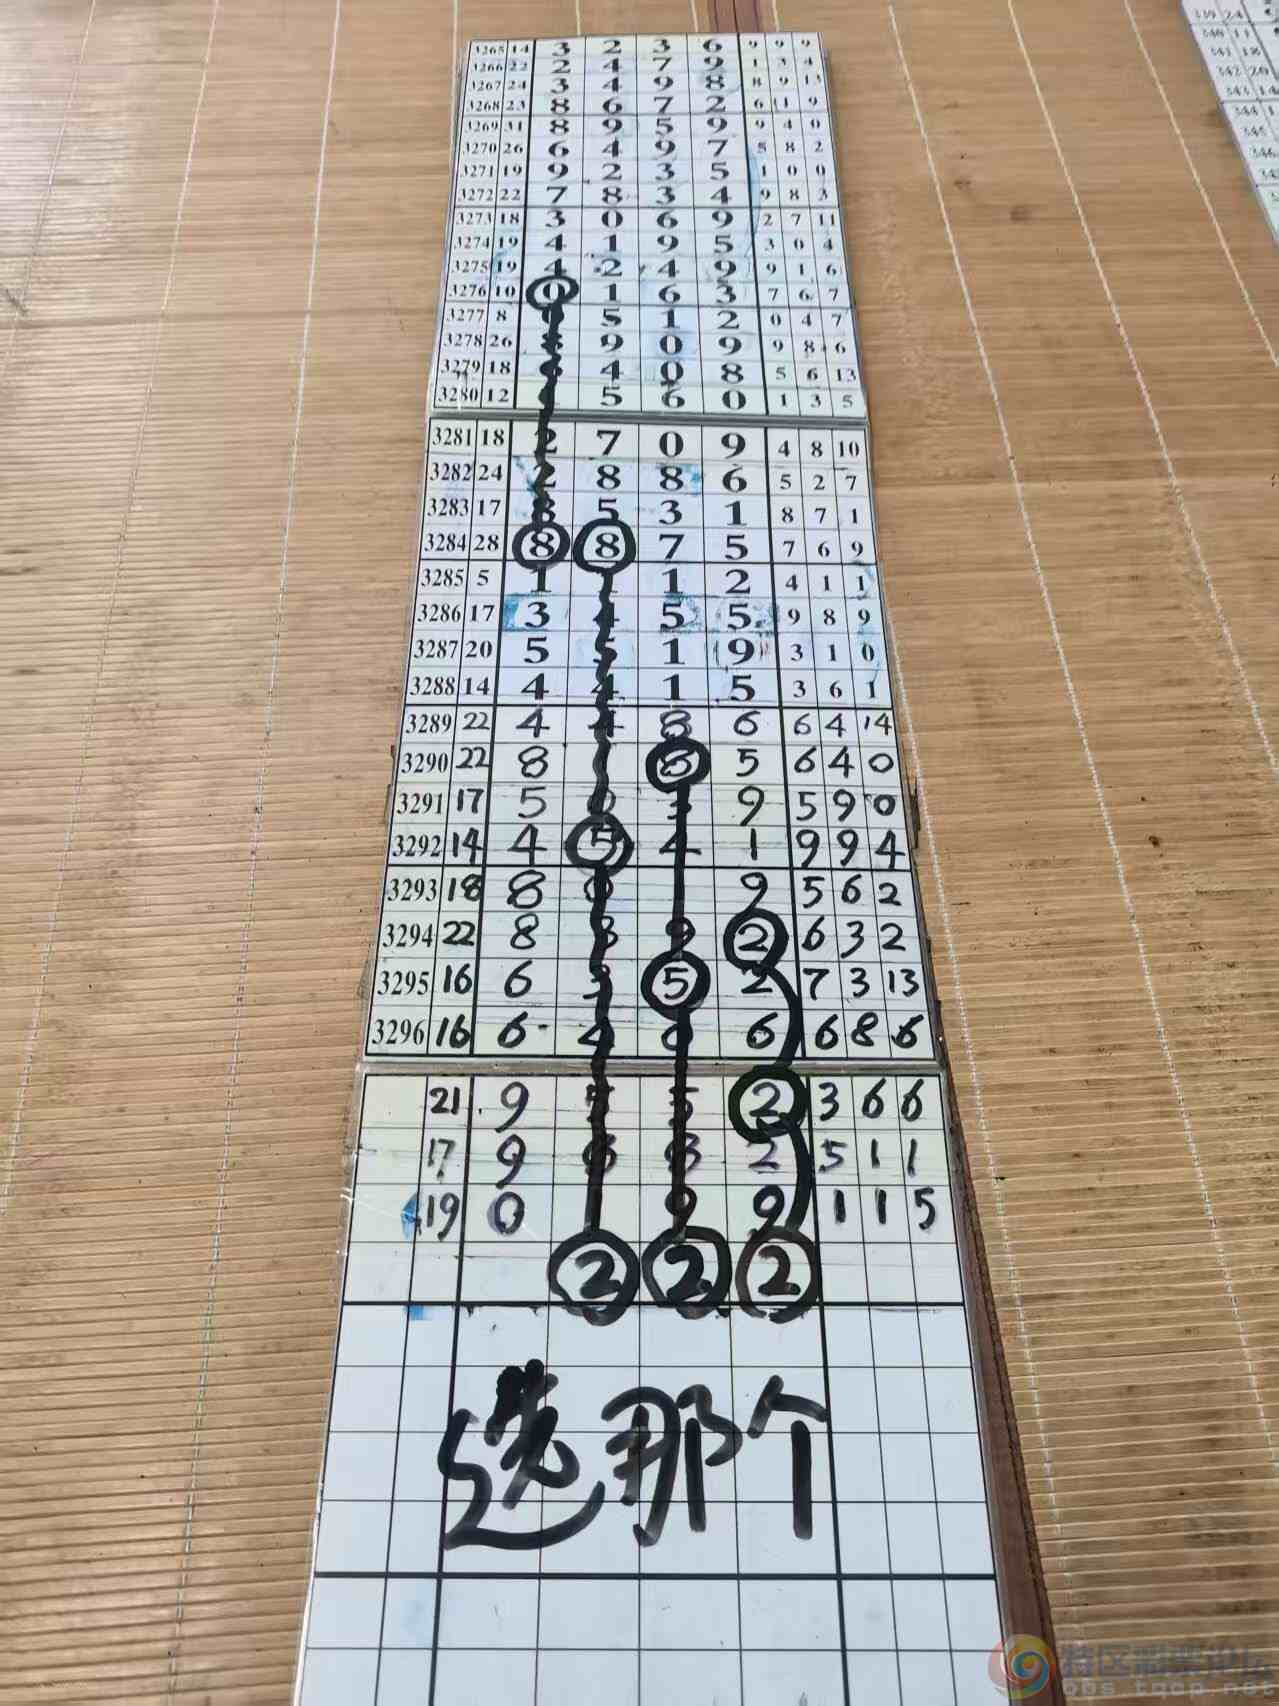 3265 14 3 2 3 6 9 9 9
3266 22 2 4 7 9 1 3 4
3267 24 3 4 9 8 8 9 13
3268 23 8 6 7 2 6 1 9
3269 31 8 9 5 9 9 4 0
3270 26 6 4 9 7 5 8 2
3271 19 9 2 3 5 1 0 0
3272 22 7 8 3 4 9 8 3
3273 18 3 0 6 9 2 7 11
3274 19 4 1 9 5 3 0 4
3275 19 4 2 4 9 9 1 6
3276 10 0 1 6 3 7 6 7
3277 8 5 1 2 0 4 7
3278 26 9 0 9 9 8 6
3279 18 6 4 0 8 5 6 13
3280 12 5 6 0 1 3 5
3281 18 2 7 0 9 4 8 10
3282 24 2 8 8 6 5 2 7
3283 17 8 5 3 1 8 7 1
3284 28 8 8 7 5 7 6 9
3285 5 1 1 1 2 4 1 1
3286 17 3 4 5 5 9 8 9
3287 20 5 5 1 9 3 1 0
3288 14 4 4 1 5 3 6 1
3289 22 4 4 8 6 6 4 14
3290 22 8 8 5 6 4 0
3291 17 5 0 3 9 5 9 0
3292 14 4 5 4 1 9 9 4
3293 18 8 0 9 5 6 2
3294 22 8 3 9 2 6 3 2
3295 16 6 3 5 2 7 3 13
3296 16 6 4 6 6 8 6
21 9 5 2 3 6 6
17 9 2 5 1 1
19 0 9 9 1 1 5
2 2 2
选那个
339 24
340 11
341 18
342 20
343 14
344 1
345
346
特区彩票论坛
bbs.tqcp.net